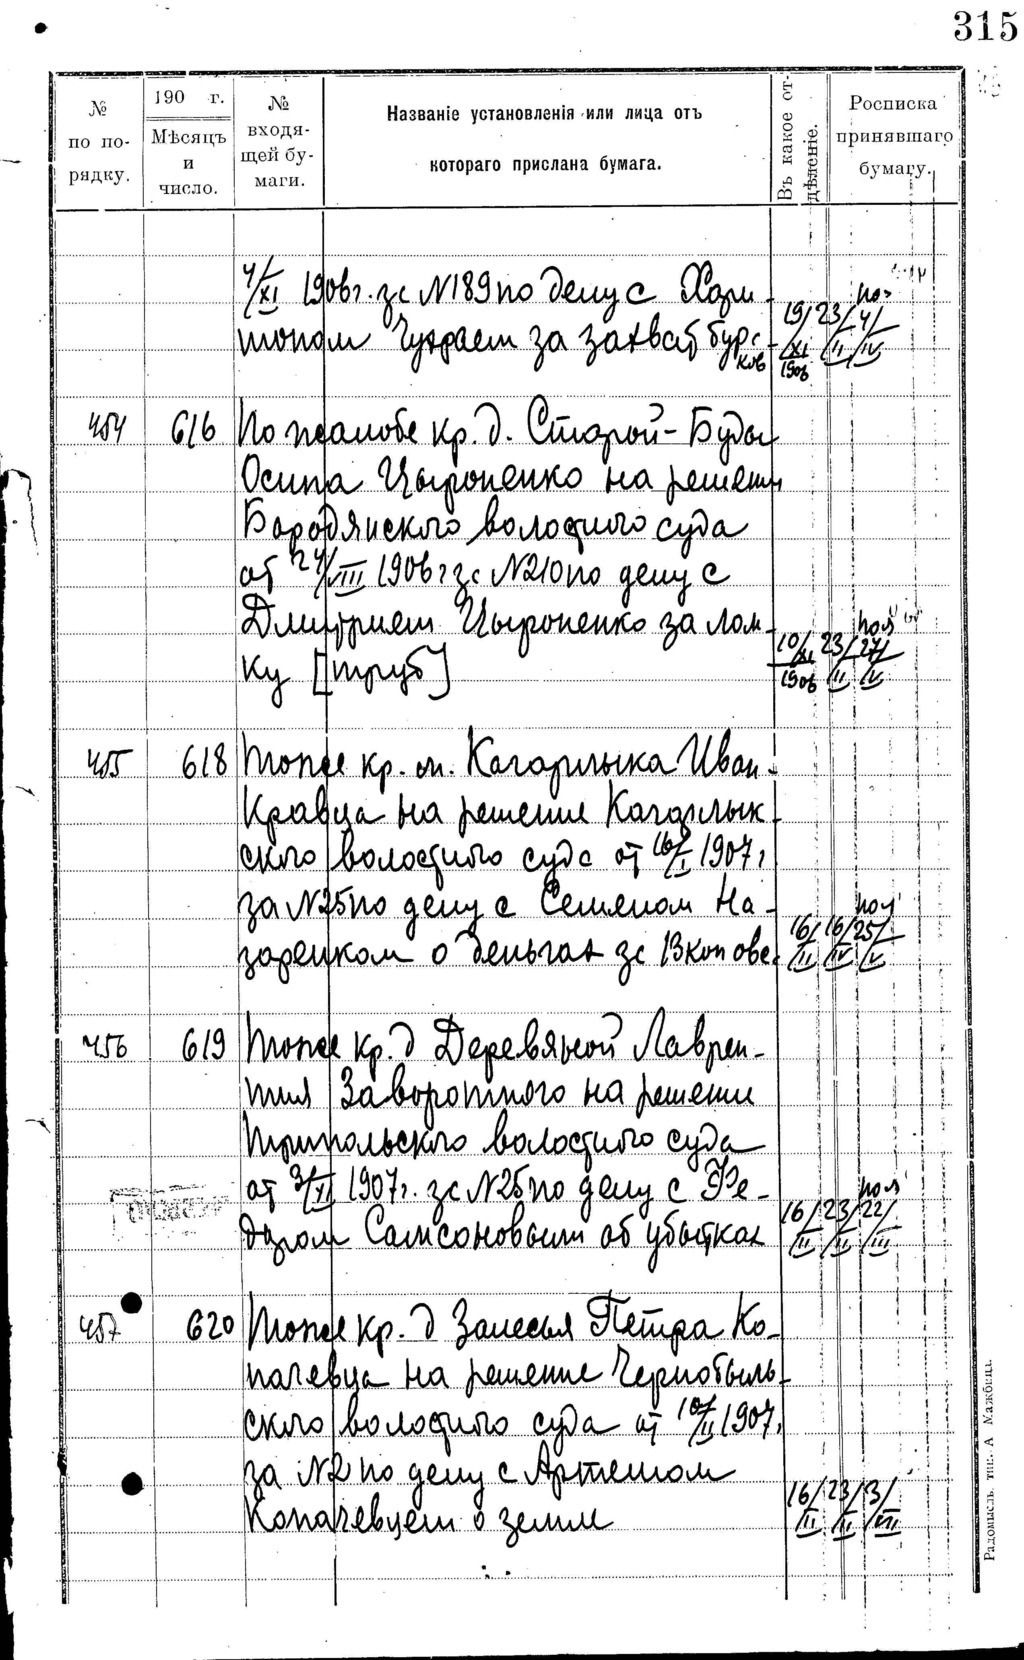 315
№ по по-рядку.
190 г.
Мѣсяцъ и число.
№ входя-щей бу-маги.
Названіе установленія или лица отъ
котораго прислана бумага.
Въ какое от-дѣленіе.
Росписка принявшаго бумагу.
4/XI 1906 г. за №189 по делу с Хари-
тоном Чухраем за захват бурс-
ков
19/XI 1906 23/II 4/IV
454 616 По жалобе кр. д. Старой-Буды
Осипа Цыроненко на решении
Бародянского волостного суда
от 24/VIII 1906 г за №210 по делу с
Дмитрием Цыроненко за лом-
ку [труб]
10/XI 1906 23/II 27/IV
455 618 Тоже кр. м. Кагарлыка Иван
Кравца на решение Кагарлык
ского волостного суда от 16/I 1907 г
за №25 по делу с Семеном На-
заренком о деньгах за 13 коп овс
16/II 16/IV 25/V
456 619 Тоже кр. д Деревяной Лаврен-
тия Заворотнего на решении
Трипольского волостного суда
от 1907 г. за №25 по делу с Фе-
дором Самсоновым об убытках
16/II 23/II 22/III
457 620 Тоже кр. д Залесья Петра Ко-
пачевца на решение Чернобыль-
ского волостного суда от 10/II 1907
за №2 по делу с Артемом
Копачевцем о земле
16/II 23/II 3/VII
Радомысль. тип. А Мажбица.